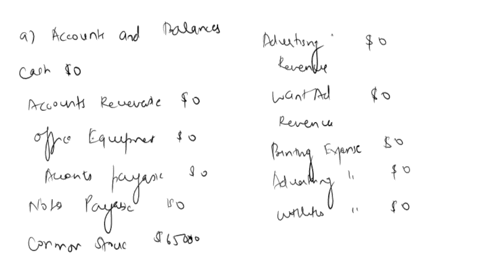 a) Accounts and Balances
Cash $0
Accounts Receivable $0
Office Equipment $0
Accounts payable $0
Notes Payable $0
Common Stock $65000
Advertising $0
Revenue
Want Ad $0
Revenue
Printing Expense $0
Advertising " $0
Utilities " $0